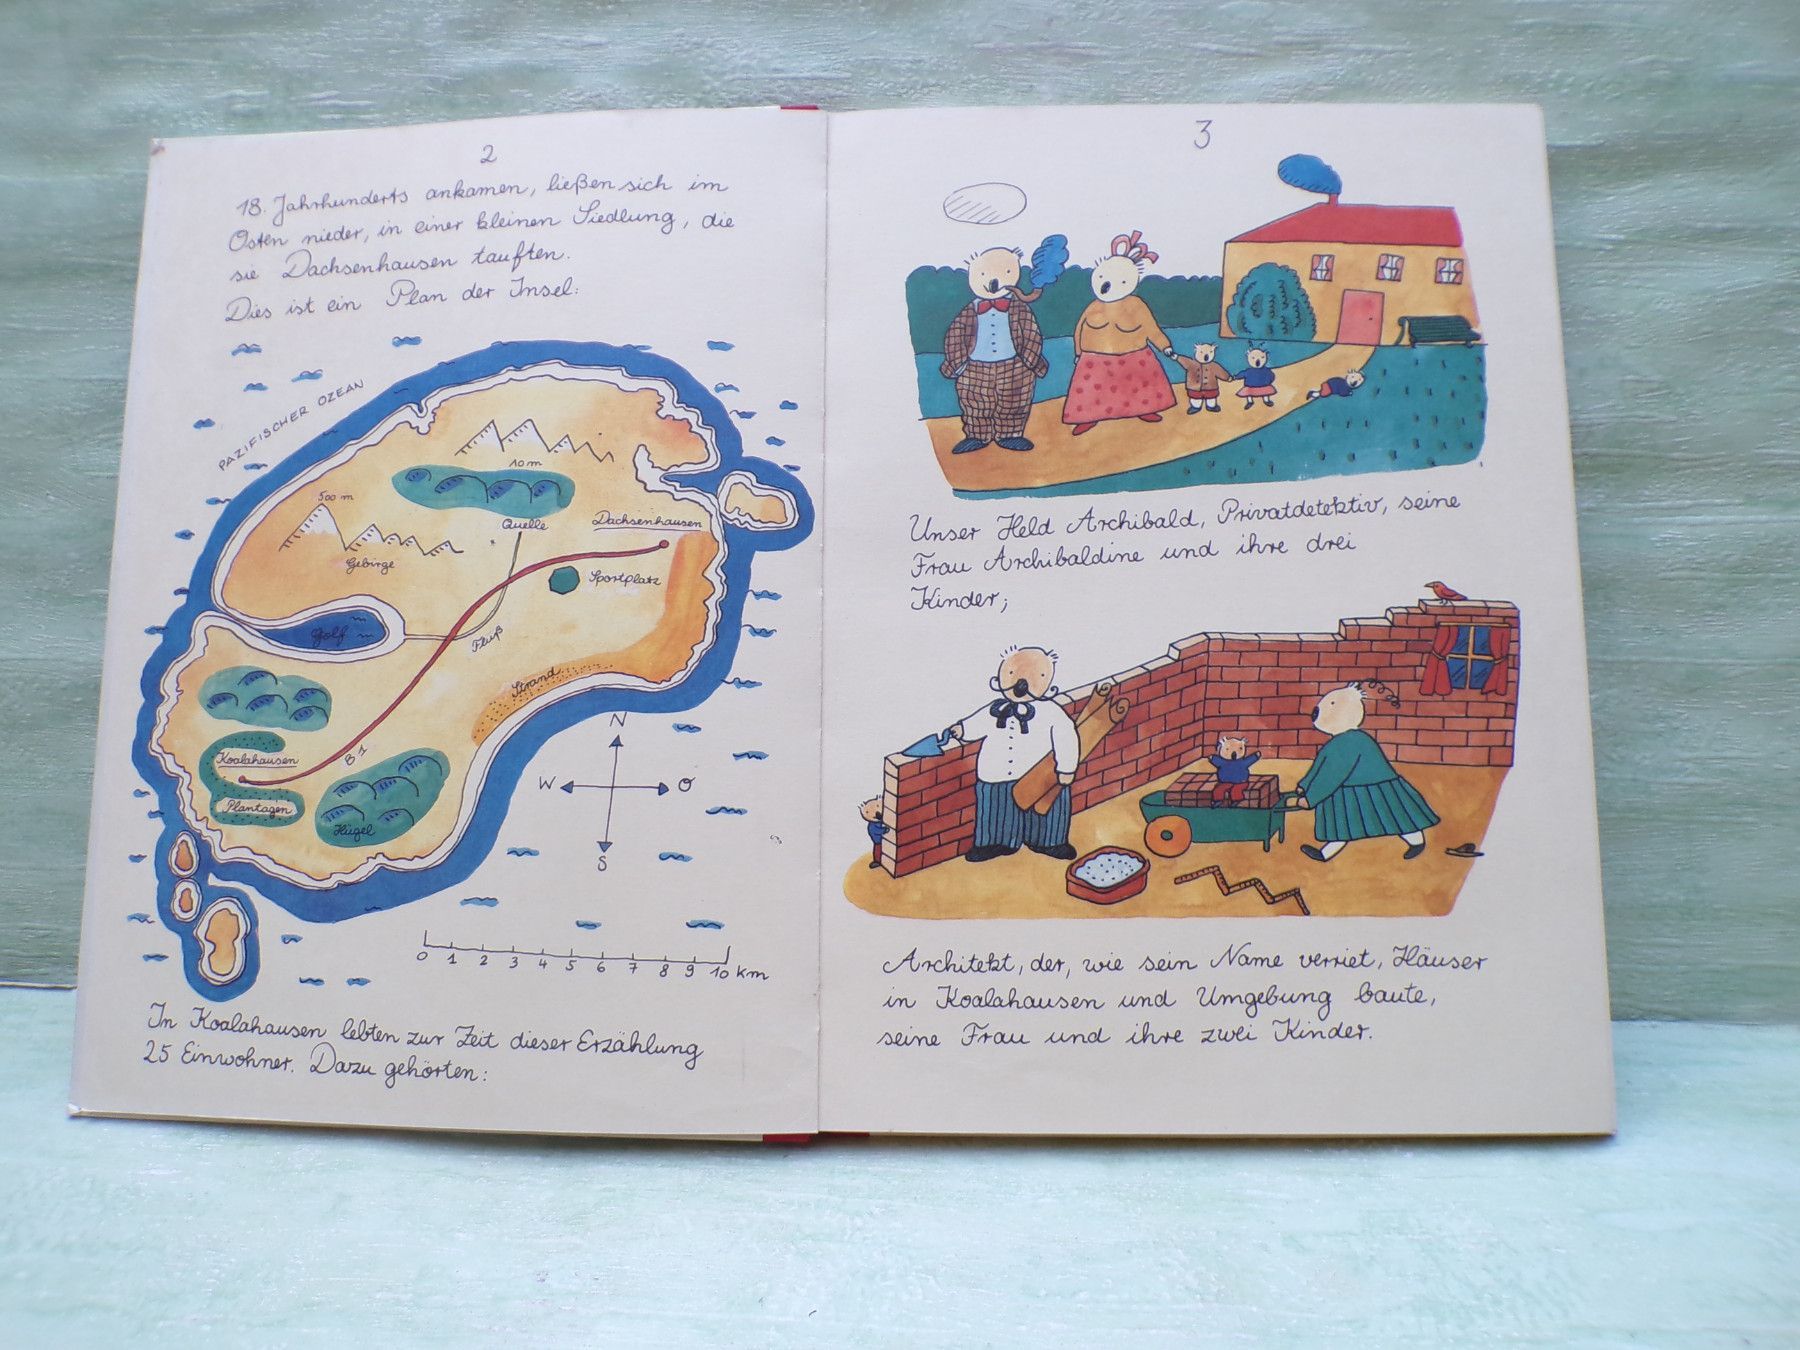 2
18. Jahrhunderts ankamen, ließen sich im
Osten nieder, in einer kleinen Siedlung, die
sie Dachsenhausen tauften.
Dies ist ein Plan der Insel:
PAZIFISCHER OZEAN
10 m
500 m
Quelle
Dachsenhausen
Gebirge
Sportplatz
Golf
Fluß
Strand
Koalahausen
B1
Plantagen
Hügel
N
W
O
S
0 1 2 3 4 5 6 7 8 9 10 km
In Koalahausen lebten zur Zeit dieser Erzählung
25 Einwohner. Dazu gehörten:
3
Unser Held Archibald, Privatdetektiv, seine
Frau Archibaldine und ihre drei
Kinder;
Architekt, der, wie sein Name verriet, Häuser
in Koalahausen und Umgebung baute,
seine Frau und ihre zwei Kinder.